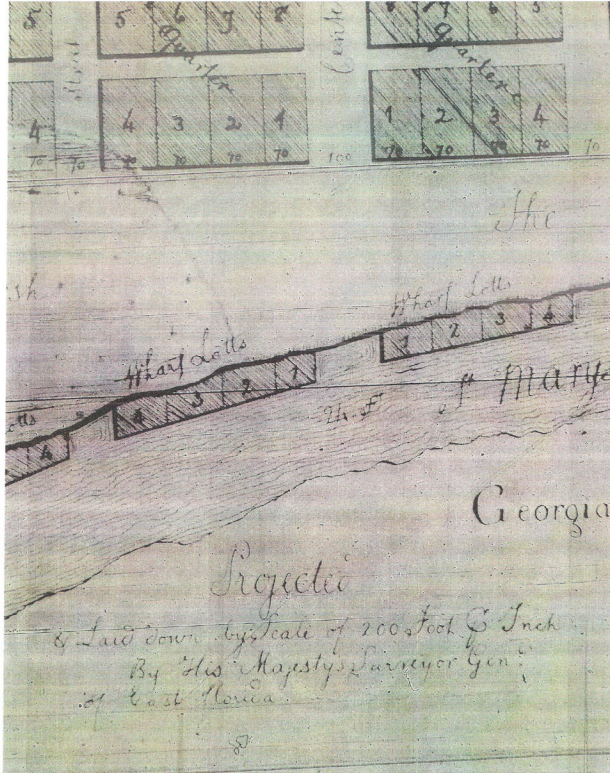 5 5 6 7 8 8 7 6 5
Quarter Quarter
Street Cente
4 4 3 2 1 1 2 3 4
70 70 70 70 70 70 100 70 70 70 70 70
The
sh
Wharf Lotts
1 2 3 4
Wharf Lotts
4 3 2 1
otts
4
St Marys
Georgia
Projected
& Laid down by Scale of 200 Foot ⅌ Inch
By His Majestys Surveyor Genl
of East Florida